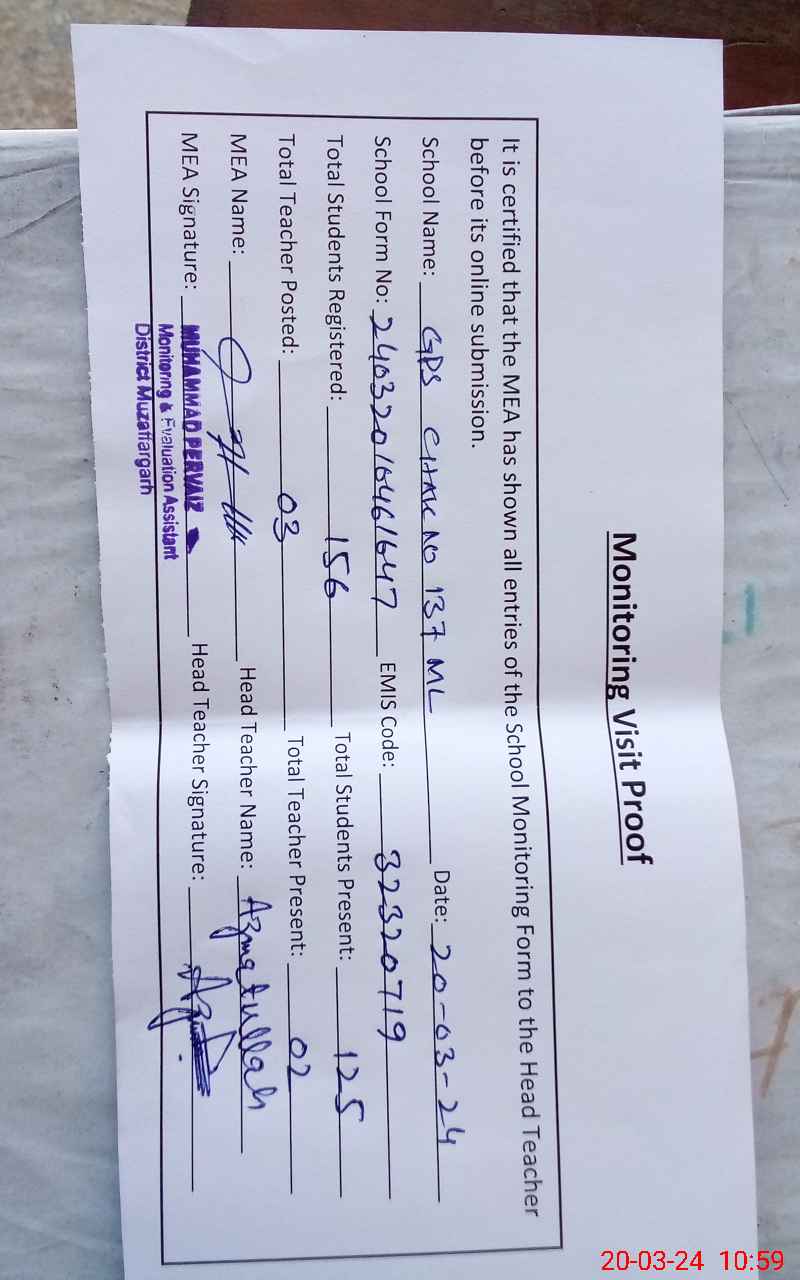 Monitoring Visit Proof
It is certified that the MEA has shown all entries of the School Monitoring Form to the Head Teacher
before its online submission.
School Name: GPS CHAK NO 137 ML Date: 20-03-24
School Form No: 24032016461647 EMIS Code: 32320719
Total Students Registered: 156 Total Students Present: 125
Total Teacher Posted: 03 Total Teacher Present: 02
MEA Name: Head Teacher Name: Azmatullah
MEA Signature: MUHAMMAD PERVAIZ Head Teacher Signature:
Monitoring & Evaluation Assistant
District Muzaffargarh
20-03-24 10:59